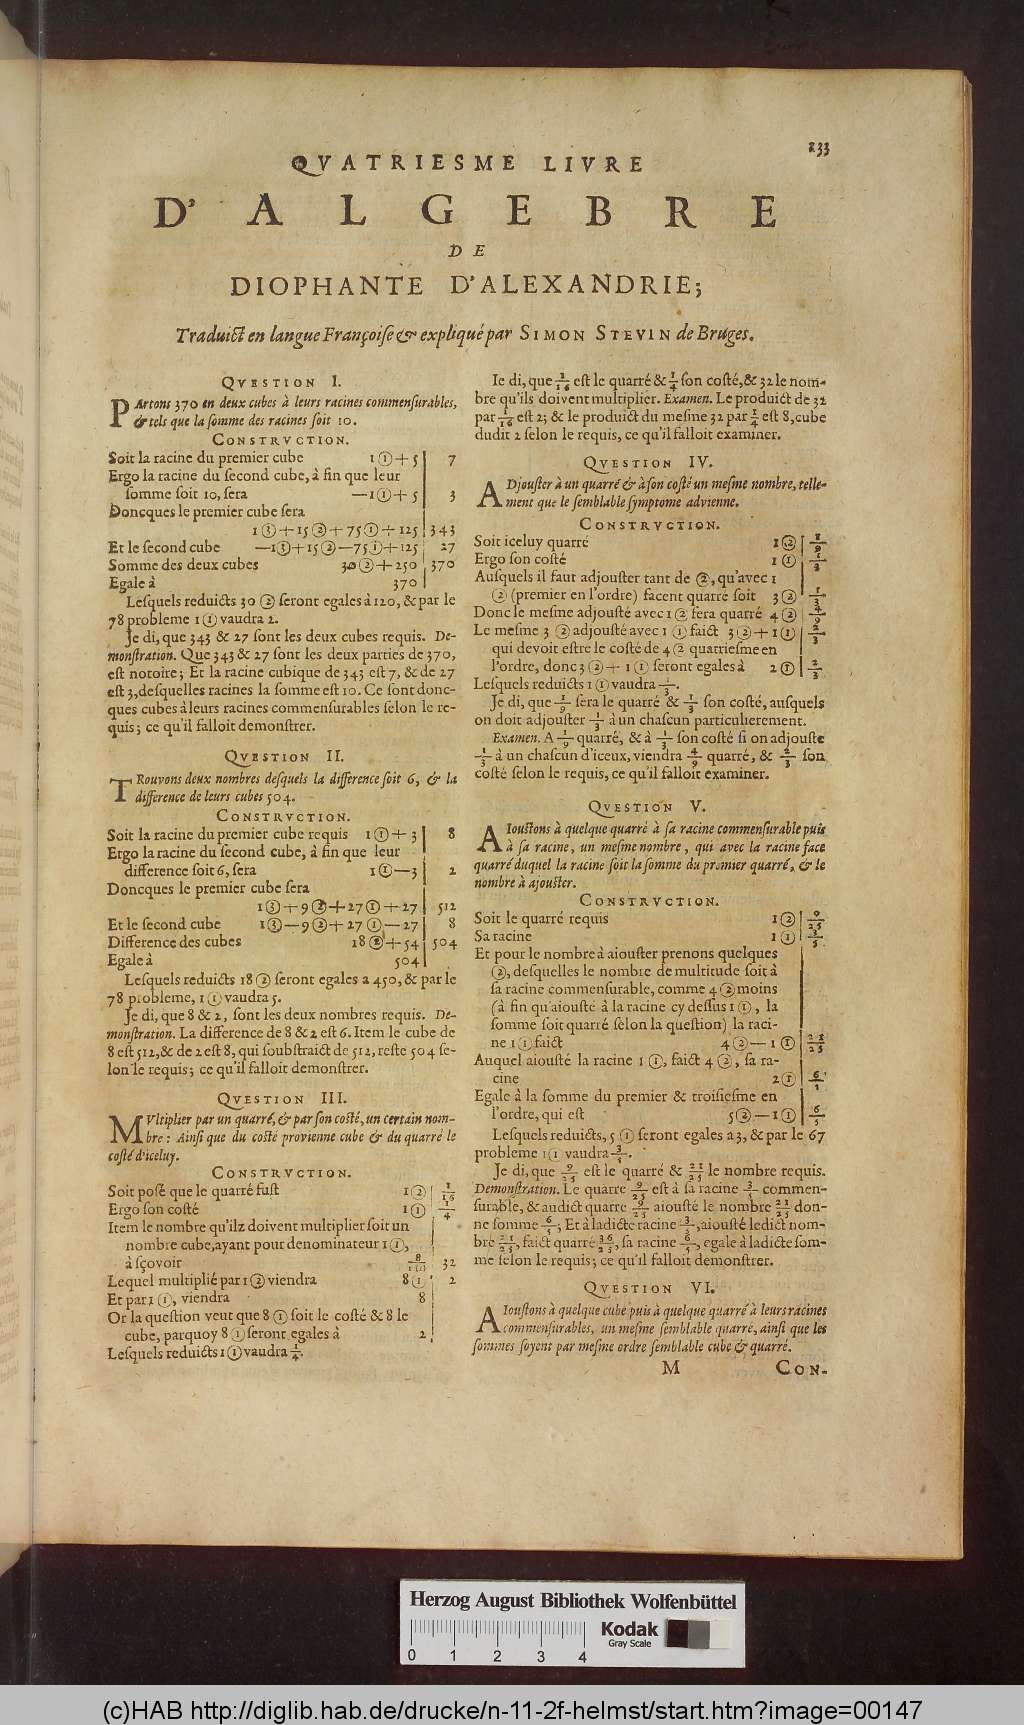 233
QVATRIESME LIVRE
D'ALGEBRE
DE
DIOPHANTE D'ALEXANDRIE;
Traduict en langue Françoiſe & expliqué par SIMON STEVIN de Bruges.
QVESTION I.
PArtons 370 en deux cubes à leurs racines commenſurables,
& tels que la ſomme des racines ſoit 10.
CONSTRVCTION.
Soit la racine du premier cube 1①+5 7
Ergo la racine du ſecond cube, à fin que leur
ſomme ſoit 10, ſera —1①+5 3
Doncques le premier cube ſera
1③+15②+75①+125 343
Et le ſecond cube —1③+15②—75①+125 27
Somme des deux cubes 30②+250 370
Egale à 370
Leſquels reduicts 30② ſeront egales à 120, & par le
78 probleme 1① vaudra 2.
Je di, que 343 & 27 ſont les deux cubes requis. De-
monſtration. Que 343 & 27 ſont les deux parties de 370,
eſt notoire; Et la racine cubique de 343 eſt 7, & de 27
eſt 3, deſquelles racines la ſomme eſt 10. Ce ſont donc-
ques cubes à leurs racines commenſurables ſelon le re-
quis; ce qu'il falloit demonſtrer.
QVESTION II.
TRouvons deux nombres deſquels la difference ſoit 6, & la
difference de leurs cubes 504.
CONSTRVCTION.
Soit la racine du premier cube requis 1①+3 8
Ergo la racine du ſecond cube, à fin que leur
difference ſoit 6, ſera 1①—3 2
Doncques le premier cube ſera
1③+9②+27①+27 512
Et le ſecond cube 1③—9②+27①—27 8
Difference des cubes 18②+54 504
Egale à 504
Leſquels reduicts 18② ſeront egales a 450, & par le
78 probleme, 1① vaudra 5.
Je di, que 8 & 2, ſont les deux nombres requis. De-
monſtration. La difference de 8 & 2 eſt 6. Item le cube de
8 eſt 512, & de 2 eſt 8, qui ſoubſtraict de 512, reſte 504 ſe-
lon le requis; ce qu'il falloit demonſtrer.
QVESTION III.
MVltiplier par un quarré, & par ſon coſté, un certain nom-
bre: Ainſi que du coſté provienne cube & du quarré le
coſté d'iceluy.
CONSTRVCTION.
Soit poſé que le quarré fuſt 1② 1/16
Ergo ſon coſté 1① 1/4
Item le nombre qu'ilz doivent multiplier ſoit un
nombre cube, ayant pour denominateur 1①,
à ſçovoir 8/1① 32
Lequel multiplié par 1② viendra 8① 2
Et par 1①, viendra 8
Or la queſtion veut que 8① ſoit le coſté & 8 le
cube, parquoy 8① ſeront egales à 2
Leſquels reduicts 1① vaudra 1/4.
Ie di, que 1/16 eſt le quarré & 1/4 ſon coſté, & 32 le nom-
bre qu'ils doivent multiplier. Examen. Le produict de 32
par 1/16 eſt 2; & le produict du meſme 32 par 1/4 eſt 8, cube
dudit 2 ſelon le requis, ce qu'il falloit examiner.
QVESTION IV.
ADjouſter à un quarré & à ſon coſté un meſme nombre, telle-
ment que le ſemblable ſymptome advienne.
CONSTRVCTION.
Soit iceluy quarré 1② 1/9
Ergo ſon coſté 1① 1/3
Auſquels il faut adjouſter tant de ②, qu'avec 1
② (premier en l'ordre) facent quarré ſoit 3② 1/3
Donc le meſme adjouſté avec 1② ſera quarré 4② 4/9
Le meſme 3② adjouſté avec 1① faict 3②+1① 2/3
qui devoit eſtre le coſté de 4② quatrieſme en
l'ordre, donc 3②+1① ſeront egales à 2① 2/3
Leſquels reduicts 1① vaudra 1/3.
Je di, que 1/9 ſera le quarré & 1/3 ſon coſté, auſquels
on doit adjouſter 1/3 à un chaſcun particulierement.
Examen. A 1/9 quarré, & à 1/3 ſon coſté ſi on adjouſte
1/3 à un chaſcun d'iceux, viendra 4/9 quarré, & 2/3 ſon
coſté ſelon le requis, ce qu'il falloit examiner.
QVESTION V.
AIouſtons à quelque quarré à ſa racine commenſurable puis
à ſa racine, un meſme nombre, qui avec la racine face
quarré duquel la racine ſoit la ſomme du premier quarré, & le
nombre à ajouſter.
CONSTRVCTION.
Soit le quarré requis 1② 9/25
Sa racine 1① 3/5
Et pour le nombre à aiouſter prenons quelques
②, deſquelles le nombre de multitude ſoit à
ſa racine commenſurable, comme 4② moins
(à fin qu'aiouſté à la racine cy deſſus 1①, la
ſomme ſoit quarré ſelon la queſtion) la raci-
ne 1① faict 4②—1① 21/25
Auquel aiouſté la racine 1①, faict 4②, ſa ra-
cine 2① 6/5
Egale à la ſomme du premier & troiſieſme en
l'ordre, qui eſt 5②—1① 6/5
Leſquels reduicts, 5① ſeront egales a 3, & par le 67
probleme 1① vaudra 3/5.
Je di, que 9/25 eſt le quarré & 21/25 le nombre requis.
Demonſtration. Le quarre 9/25 eſt à ſa racine 3/5 commen-
ſurable, & audict quarre 9/25 aiouſté le nombre 21/25 don-
ne ſomme 6/5; Et à ladicte racine 3/5, aiouſté ledict nom-
bre 21/25, faict quarré 36/25, ſa racine 6/5, egale à ladicte ſom-
me ſelon le requis; ce qu'il falloit demonſtrer.
QVESTION VI.
AIouſtons à quelque cube puis à quelque quarré à leurs racines
commenſurables, un meſme ſemblable quarré, ainſi que les
ſommes ſoyent par meſme ordre ſemblable cube & quarré.
M CON-
Herzog August Bibliothek Wolfenbüttel
Kodak
Gray Scale
0 1 2 3 4
(c)HAB http://diglib.hab.de/drucke/n-11-2f-helmst/start.htm?image=00147